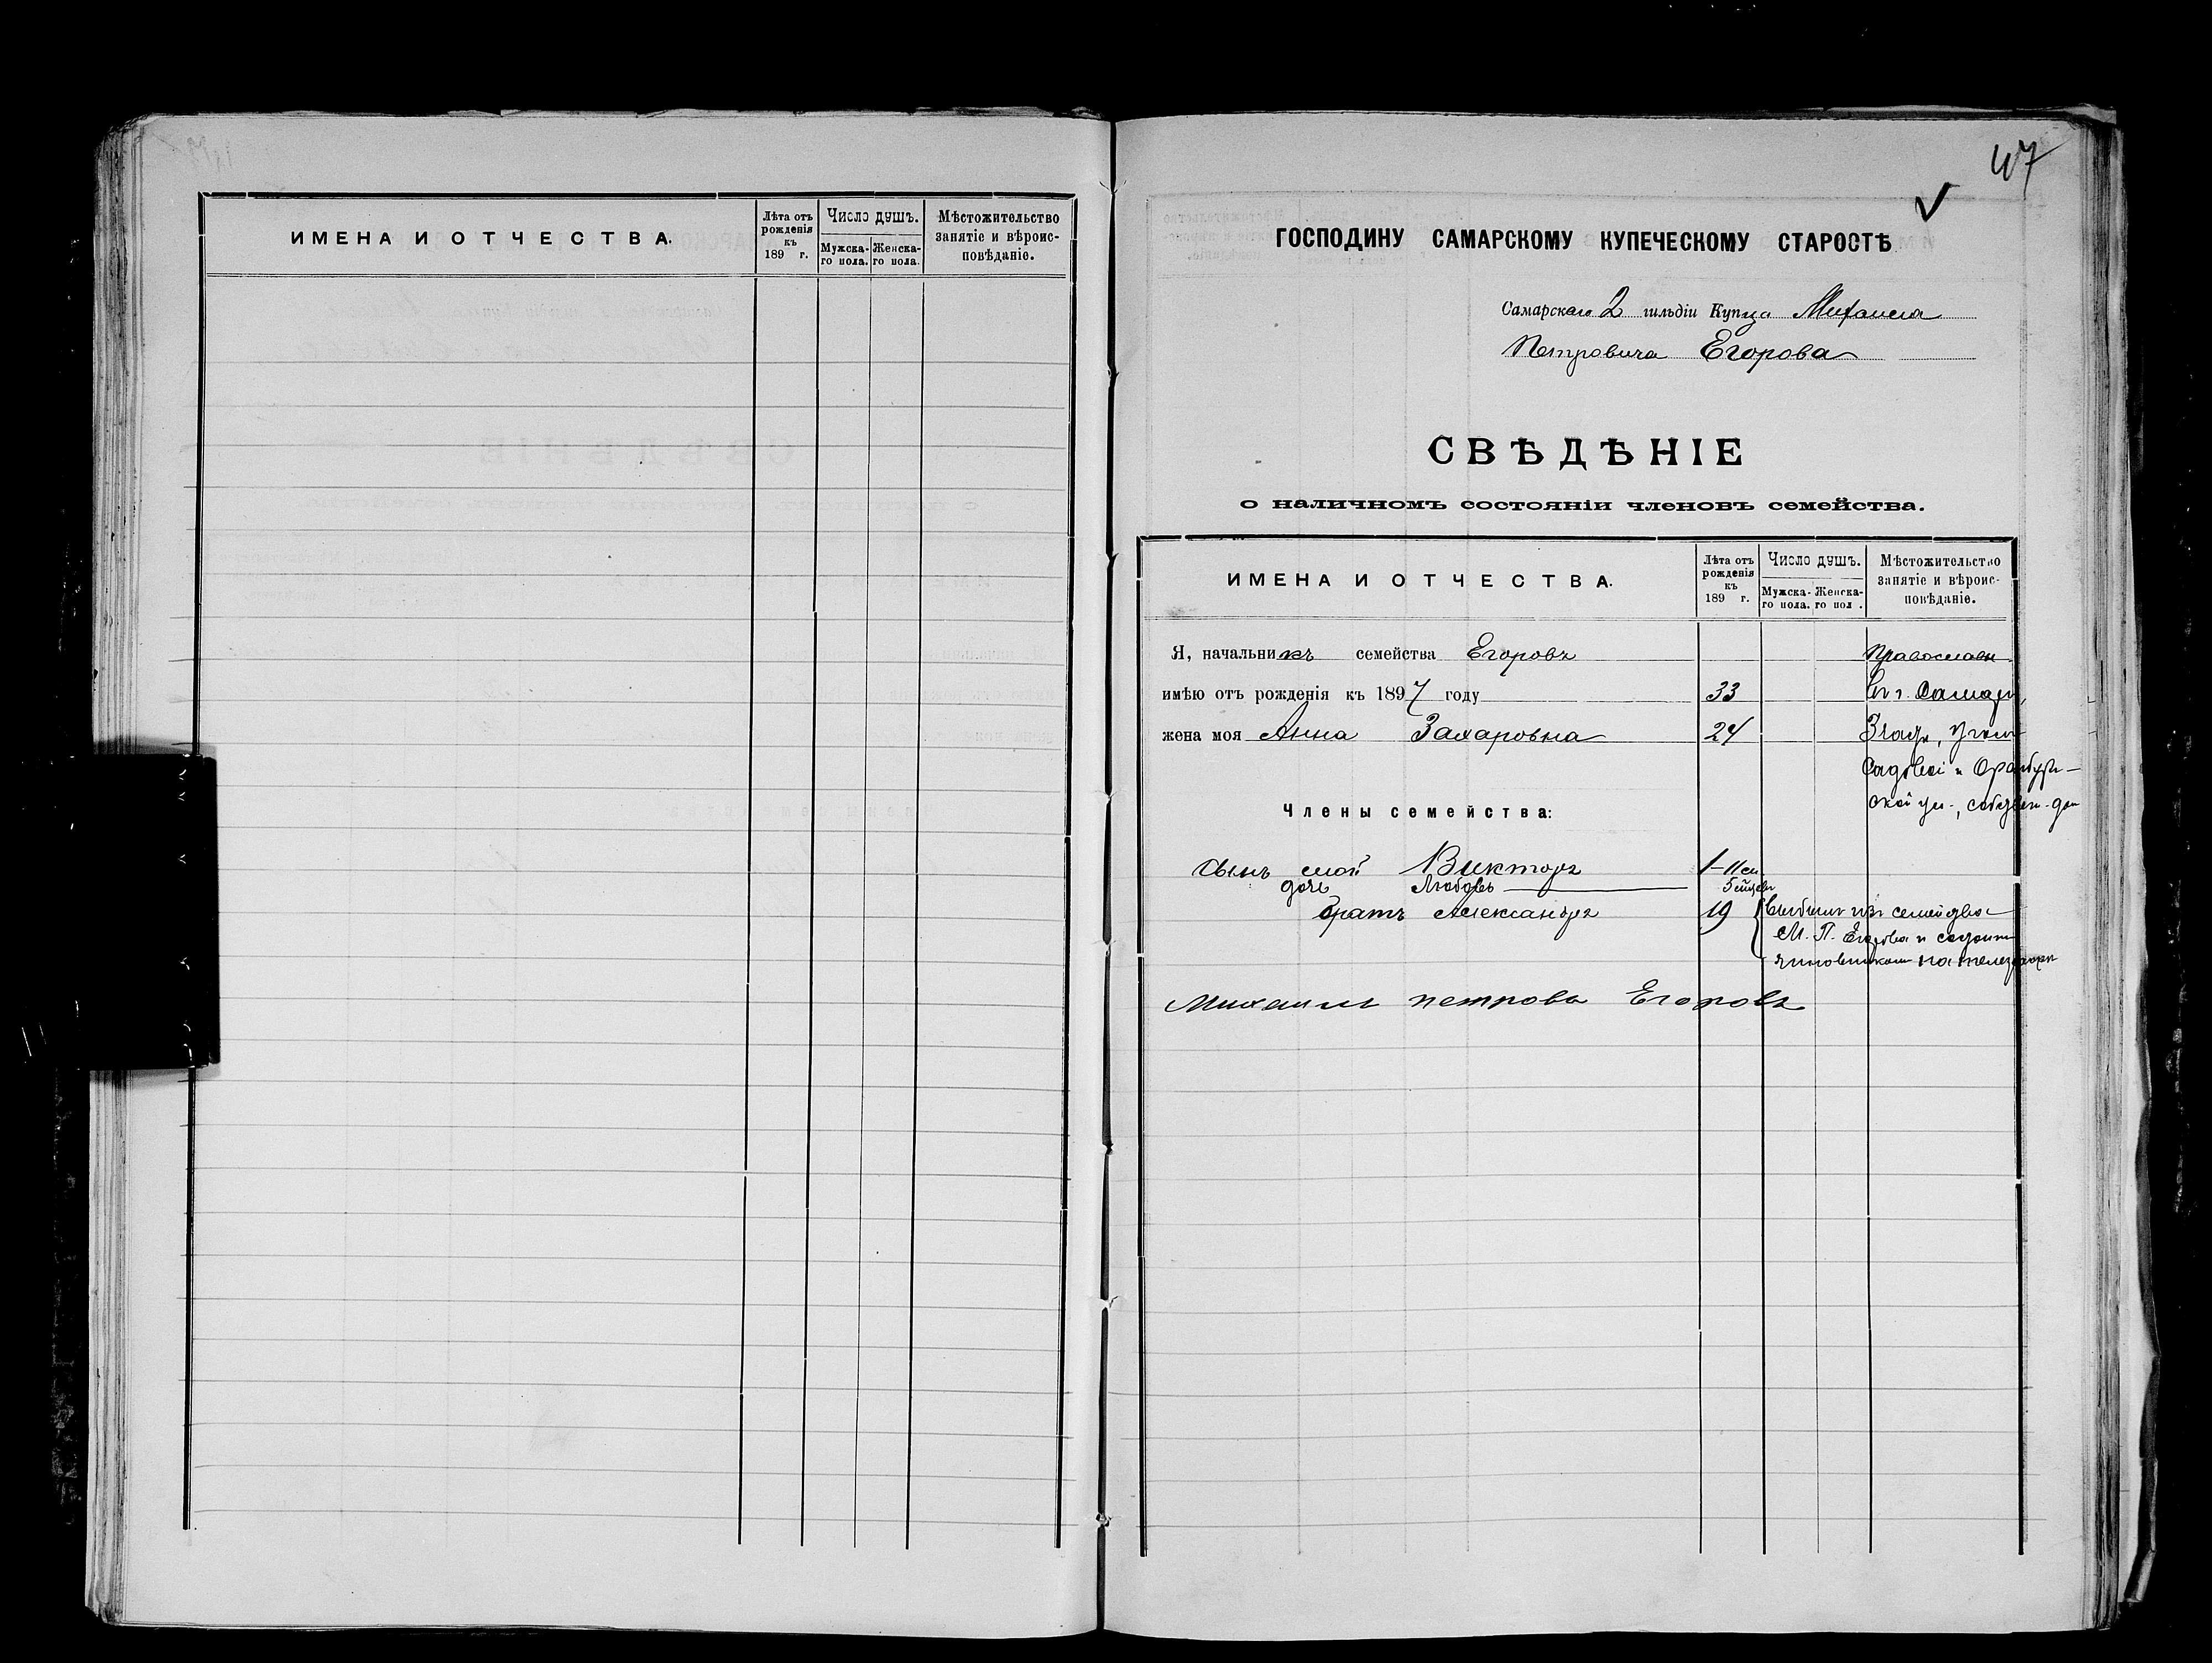 ИМЕНА И ОТЧЕСТВА.
Лѣта отъ рожденія къ 189 г.
Число душъ.
Мужска-го пола.
Женска-го пола.
Мѣстожительство занятіе и вѣроис-повѣданіе.
47
ГОСПОДИНУ САМАРСКОМУ КУПЕЧЕСКОМУ СТАРОСТѢ
Самарскаго 2 гильдіи Купца Михаила
Петровича Егорова
СВѢДѢНІЕ
о наличномъ состояніи членовъ семейства.
ИМЕНА И ОТЧЕСТВА.
Лѣта отъ рожденія къ 189 г.
Число душъ.
Мужска-го пола.
Женска-го пол .
Мѣстожительство занятіе и вѣроис-повѣданіе.
Я, начальникъ семейства Егоровъ Православн.
имѣю отъ рожденія къ 1897 году 33 въ г. Самарѣ,
жена моя Анна Захаровна 24
Садовой и Оренбург-
ской ул.,
Члены семейства:
сынъ мой Викторъ 1
дочь Любовь
братъ Александръ 19 семейства
М. П. Егорова и состоитъ
чиновникомъ на телеграфѣ
Михаилъ петровъ Егоровъ